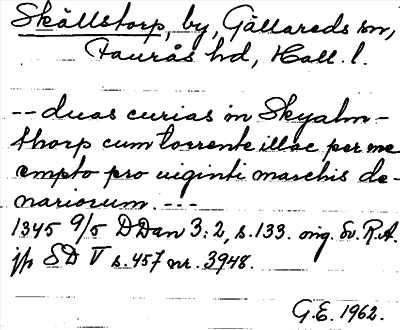 Skällstorp, by, Gällareds sn,
Faurås hd, Hall. l.
-- duas curias in Skyalm-
thorp cum torrente illac per me
empto pro uiginti marchis de-
nariorum. ---
1345 9/5 DDan 3:2, s. 133. orig. Sv. R.A.
jfr SD V s. 457 nr. 3948.
G.E. 1962.